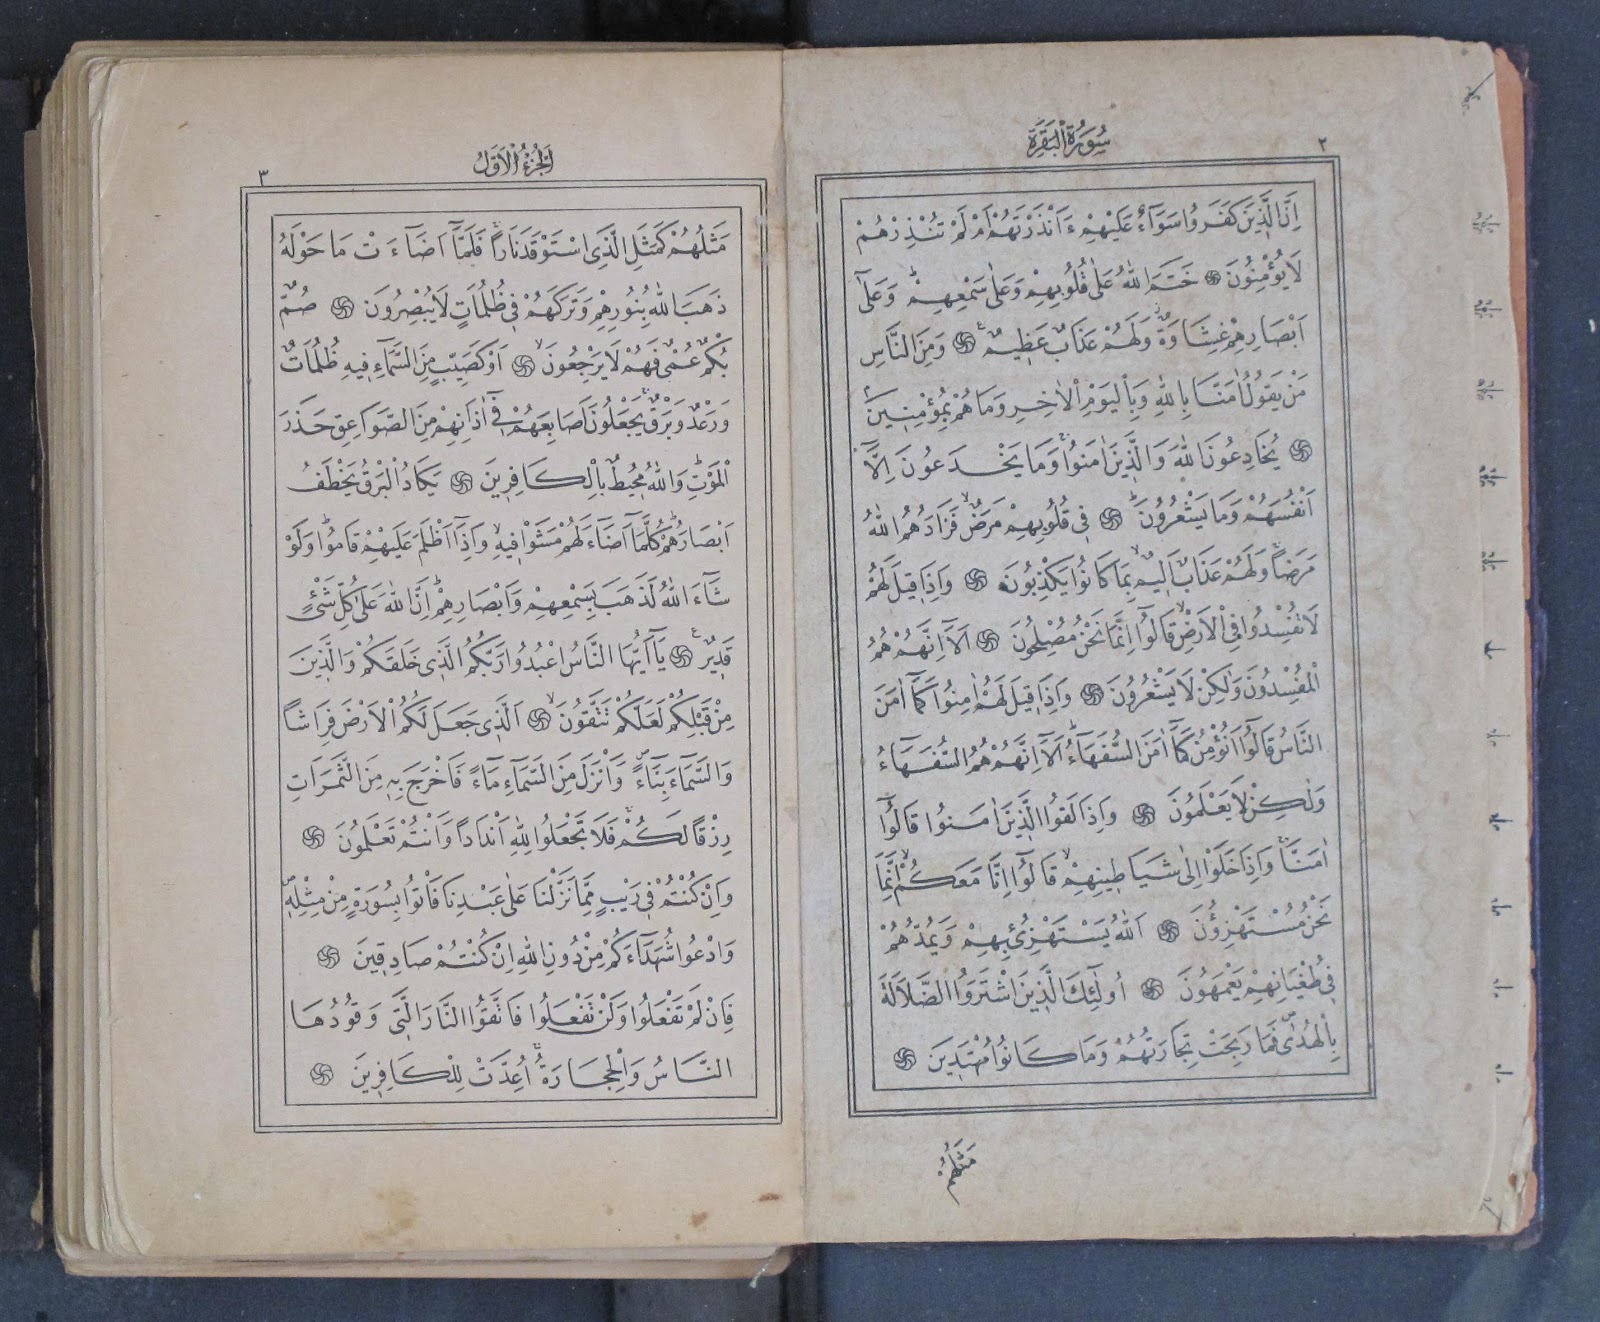 ٢
سُورَةُ الْبَقَرَةِ
اِنَّ الَّذٖينَ كَفَرُوا سَوَٓاءٌ عَلَيْهِمْ ءَاَنْذَرْتَهُمْ اَمْ لَمْ تُنْذِرْهُمْ
لَا يُؤْمِنُونَ ۞ خَتَمَ اللّٰهُ عَلٰى قُلُوبِهِمْ وَعَلٰى سَمْعِهِمْؕ وَعَلٰٓى
اَبْصَارِهِمْ غِشَاوَةٌؗ وَلَهُمْ عَذَابٌ عَظٖيمٌࣖ ۞ وَمِنَ النَّاسِ
مَنْ يَقُولُ اٰمَنَّا بِاللّٰهِ وَبِالْيَوْمِ الْاٰخِرِ وَمَا هُمْ بِمُؤْمِنٖينَۘ
۞ يُخَادِعُونَ اللّٰهَ وَالَّذٖينَ اٰمَنُواۚ وَمَا يَخْدَعُونَ اِلَّٓا
اَنْفُسَهُمْ وَمَا يَشْعُرُونَؕ ۞ فٖى قُلُوبِهِمْ مَرَضٌۙ فَزَادَهُمُ اللّٰهُ
مَرَضًاۚ وَلَهُمْ عَذَابٌ اَلٖيمٌۙ بِمَا كَانُوا يَكْذِبُونَ ۞ وَاِذَا قٖيلَ لَهُمْ
لَا تُفْسِدُوا فِى الْاَرْضِۙ قَالُٓوا اِنَّمَا نَحْنُ مُصْلِحُونَ ۞ اَلَٓا اِنَّهُمْ هُمُ
الْمُفْسِدُونَ وَلٰكِنْ لَا يَشْعُرُونَ ۞ وَاِذَا قٖيلَ لَهُمْ اٰمِنُوا كَمَٓا اٰمَنَ
النَّاسُ قَالُٓوا اَنُؤْمِنُ كَمَٓا اٰمَنَ السُّفَهَٓاءُؕ اَلَٓا اِنَّهُمْ هُمُ السُّفَهَٓاءُ
وَلٰكِنْ لَا يَعْلَمُونَ ۞ وَاِذَا لَقُوا الَّذٖينَ اٰمَنُوا قَالُٓوا
اٰمَنَّاۚ وَاِذَا خَلَوْا اِلٰى شَيَاطٖينِهِمْۙ قَالُٓوا اِنَّا مَعَكُمْۙ اِنَّمَا
نَحْنُ مُسْتَهْزِؤُنَ ۞ اَللّٰهُ يَسْتَهْزِئُ بِهِمْ وَيَمُدُّهُمْ
فٖى طُغْيَانِهِمْ يَعْمَهُونَ ۞ اُولٰٓئِكَ الَّذٖينَ اشْتَرَوُا الضَّلَالَةَ
بِالْهُدٰىۖ فَمَا رَبِحَتْ تِجَارَتُهُمْ وَمَا كَانُوا مُهْتَدٖينَ ۞
مَثَلُهُمْ
اَلْجُزْءُ الْاَوَّلُ
٣
مَثَلُهُمْ كَمَثَلِ الَّذِى اسْتَوْقَدَ نَارًاۚ فَلَمَّٓا اَضَٓاءَتْ مَا حَوْلَهُ
ذَهَبَ اللّٰهُ بِنُورِهِمْ وَتَرَكَهُمْ فٖى ظُلُمَاتٍ لَا يُبْصِرُونَ ۞ صُمٌّ
بُكْمٌ عُمْىٌ فَهُمْ لَا يَرْجِعُونَۙ ۞ اَوْ كَصَيِّبٍ مِنَ السَّمَٓاءِ فٖيهِ ظُلُمَاتٌ
وَرَعْدٌ وَبَرْقٌۚ يَجْعَلُونَ اَصَابِعَهُمْ فٖٓى اٰذَانِهِمْ مِنَ الصَّوَاعِقِ حَذَرَ
الْمَوْتِؕ وَاللّٰهُ مُحٖيطٌ بِالْكَافِرٖينَ ۞ يَكَادُ الْبَرْقُ يَخْطَفُ
اَبْصَارَهُمْؕ كُلَّمَٓا اَضَٓاءَ لَهُمْ مَشَوْا فٖيهِۙ وَاِذَٓا اَظْلَمَ عَلَيْهِمْ قَامُواؕ وَلَوْ
شَٓاءَ اللّٰهُ لَذَهَبَ بِسَمْعِهِمْ وَاَبْصَارِهِمْؕ اِنَّ اللّٰهَ عَلٰى كُلِّ شَىْءٍ
قَدٖيرٌࣖ ۞ يَٓا اَيُّهَا النَّاسُ اعْبُدُوا رَبَّكُمُ الَّذٖى خَلَقَكُمْ وَالَّذٖينَ
مِنْ قَبْلِكُمْ لَعَلَّكُمْ تَتَّقُونَۙ ۞ اَلَّذٖى جَعَلَ لَكُمُ الْاَرْضَ فِرَاشًا
وَالسَّمَٓاءَ بِنَٓاءًۖ وَاَنْزَلَ مِنَ السَّمَٓاءِ مَٓاءً فَاَخْرَجَ بِهٖ مِنَ الثَّمَرَاتِ
رِزْقًا لَكُمْۚ فَلَا تَجْعَلُوا لِلّٰهِ اَنْدَادًا وَاَنْتُمْ تَعْلَمُونَ ۞
وَاِنْ كُنْتُمْ فٖى رَيْبٍ مِمَّا نَزَّلْنَا عَلٰى عَبْدِنَا فَاْتُوا بِسُورَةٍ مِنْ مِثْلِهٖۖ
وَادْعُوا شُهَدَٓاءَكُمْ مِنْ دُونِ اللّٰهِ اِنْ كُنْتُمْ صَادِقٖينَ ۞
فَاِنْ لَمْ تَفْعَلُوا وَلَنْ تَفْعَلُوا فَاتَّقُوا النَّارَ الَّتٖى وَقُودُهَا
النَّاسُ وَالْحِجَارَةُۚ اُعِدَّتْ لِلْكَافِرٖينَ ۞